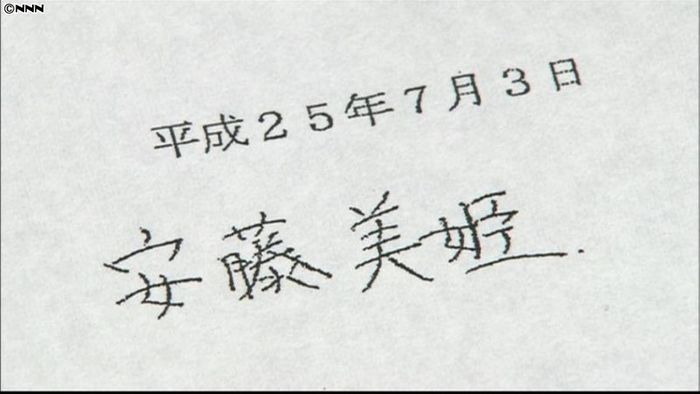 ©NNN
平成２５年７月３日
安藤美姫.